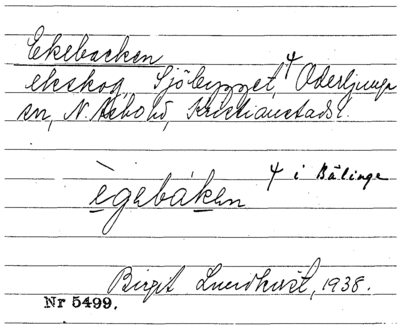 Ekebacken
ekskog, Sjöbygget, 4 Oderljunga
sn, N. Åsbo hd, Kristianstads l.
4 i Bälinge
ègebáken
Birgit Lundkvist, 1938.
Nr 5499.